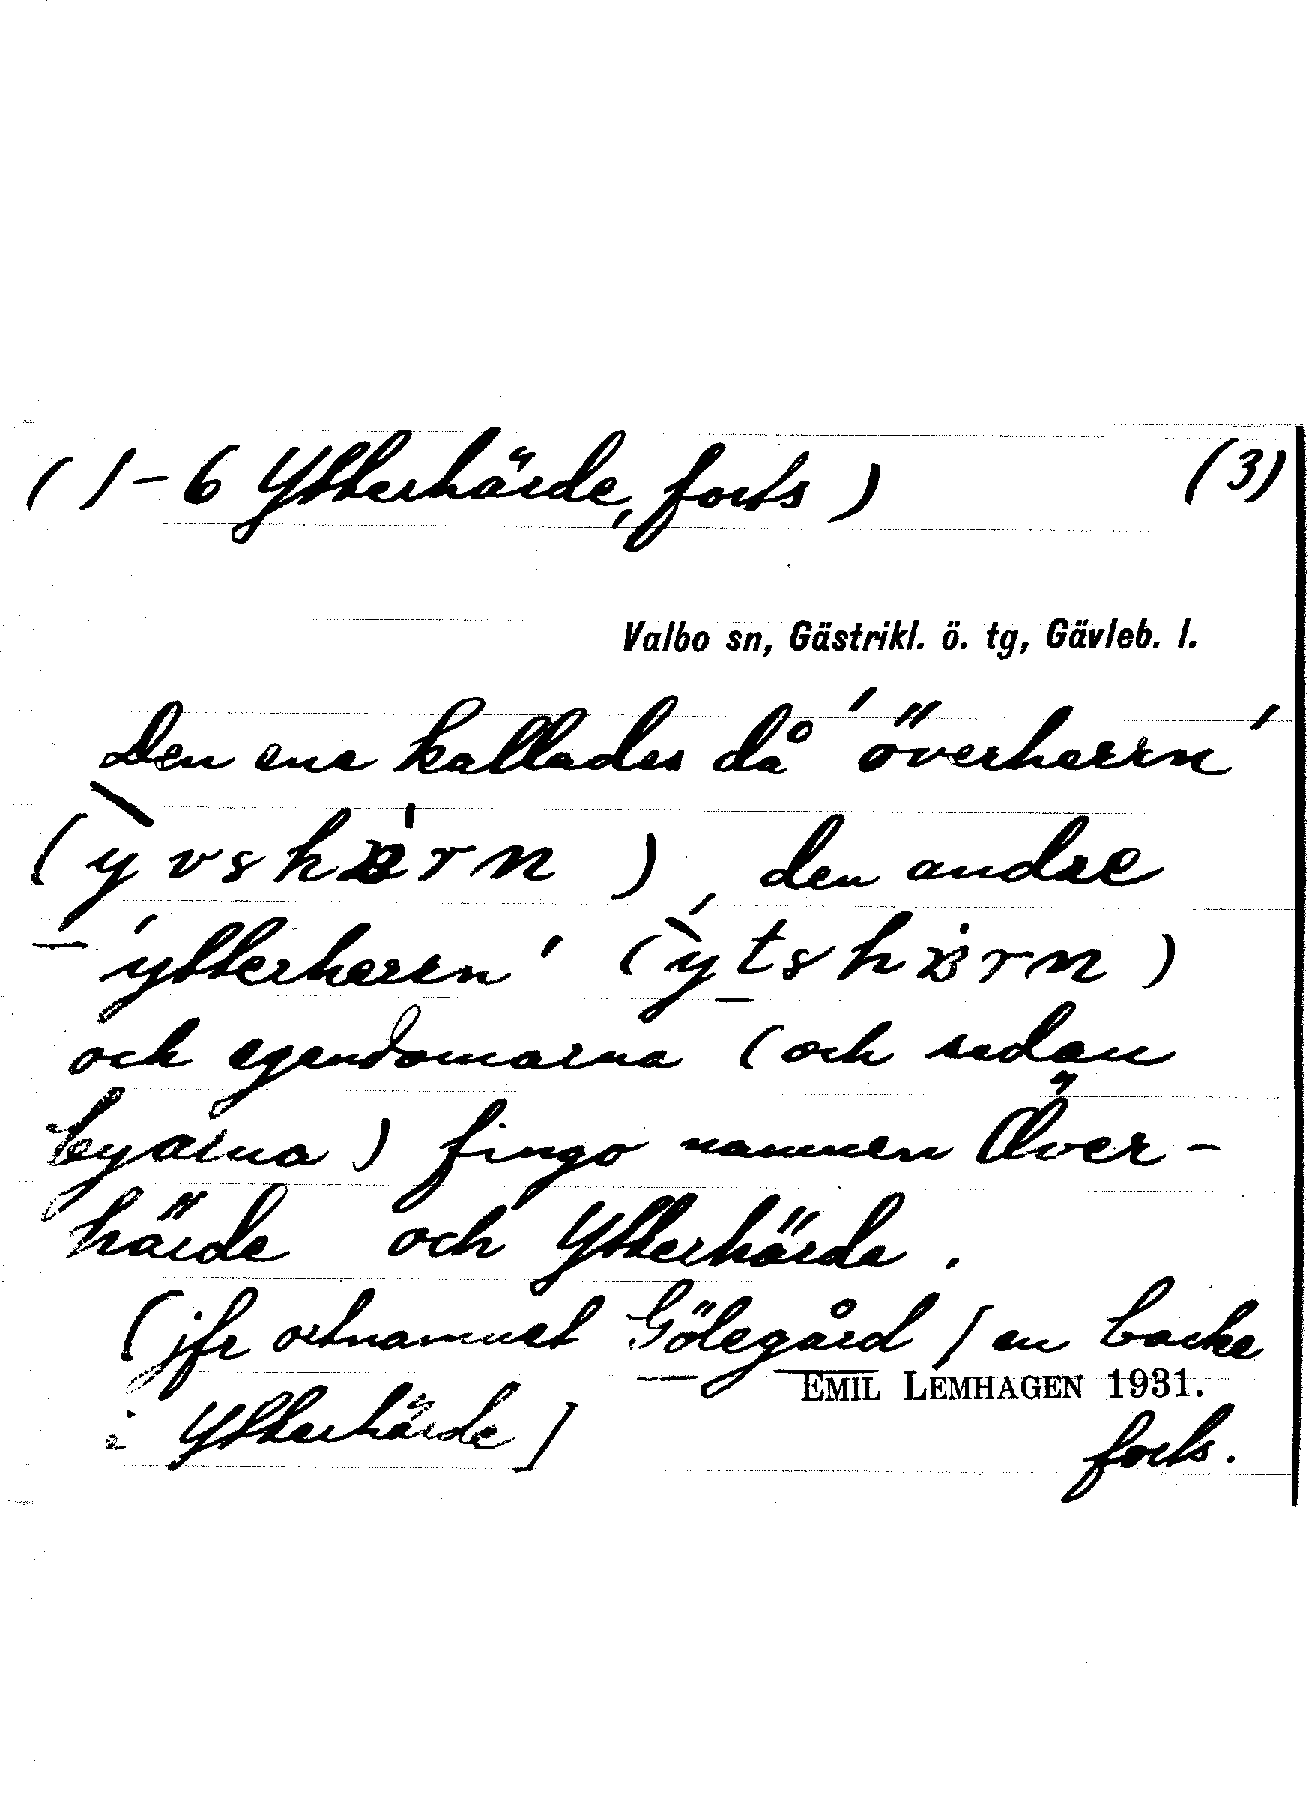 (1-6 Ytterhärde, forts) (3)
Valbo sn, Gästrikl. ö. tg, Gävleb. l.
Den ene kallades då 'överherrn'
(yvshärn), den andre
'ytterherrn' (ytshärn)
och egendomarna (och sedan
byarna) fingo namnen Över-
härde och Ytterhärde.
(jfr ortnamnet Gölegård / en backe
EMIL LEMHAGEN 1931.
i Ytterhärde]
forts.